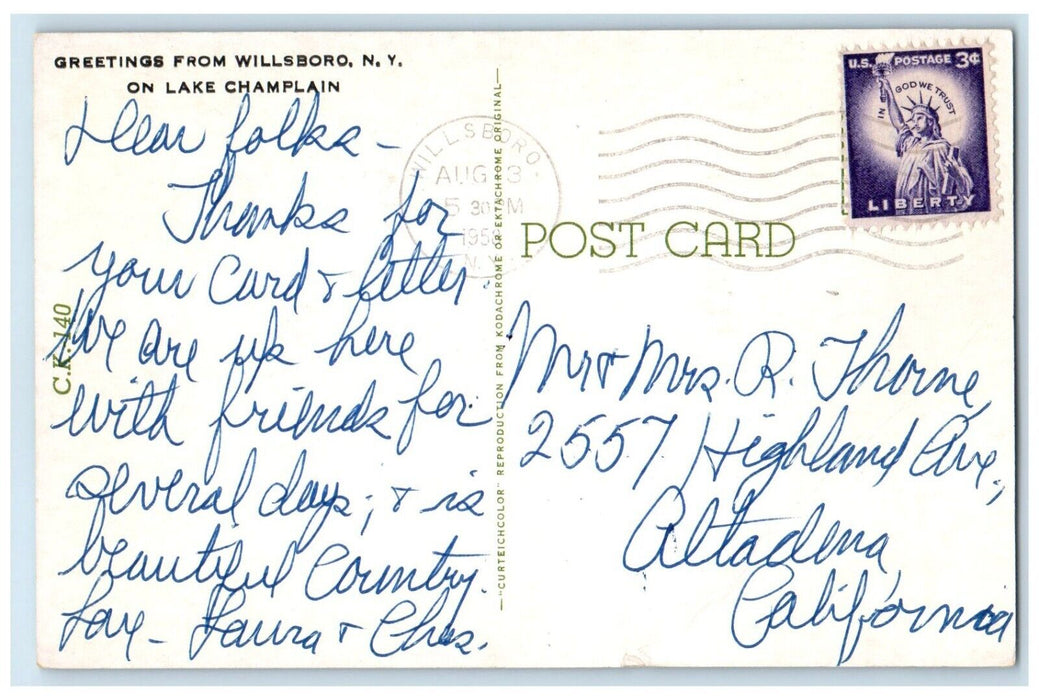 GREETINGS FROM WILLSBORO, N. Y.
ON LAKE CHAMPLAIN
Dear folks –
Thanks for
your Card & letter.
We are up here
with friends for
several days; & is
beautiful Country.
– Laura & Chas.
C.K. 140
—"CURTEICHCOLOR" REPRODUCTION FROM KODACHROME OR EKTACHROME ORIGINAL—
WILLSBORO
AUG 3
5 30 PM
1958
N.Y.
POST CARD
U.S. POSTAGE 3¢
IN GOD WE TRUST
LIBERTY
Mr & Mrs. R. Thorne,
2557 Highland Ave.,
Altadena,
California